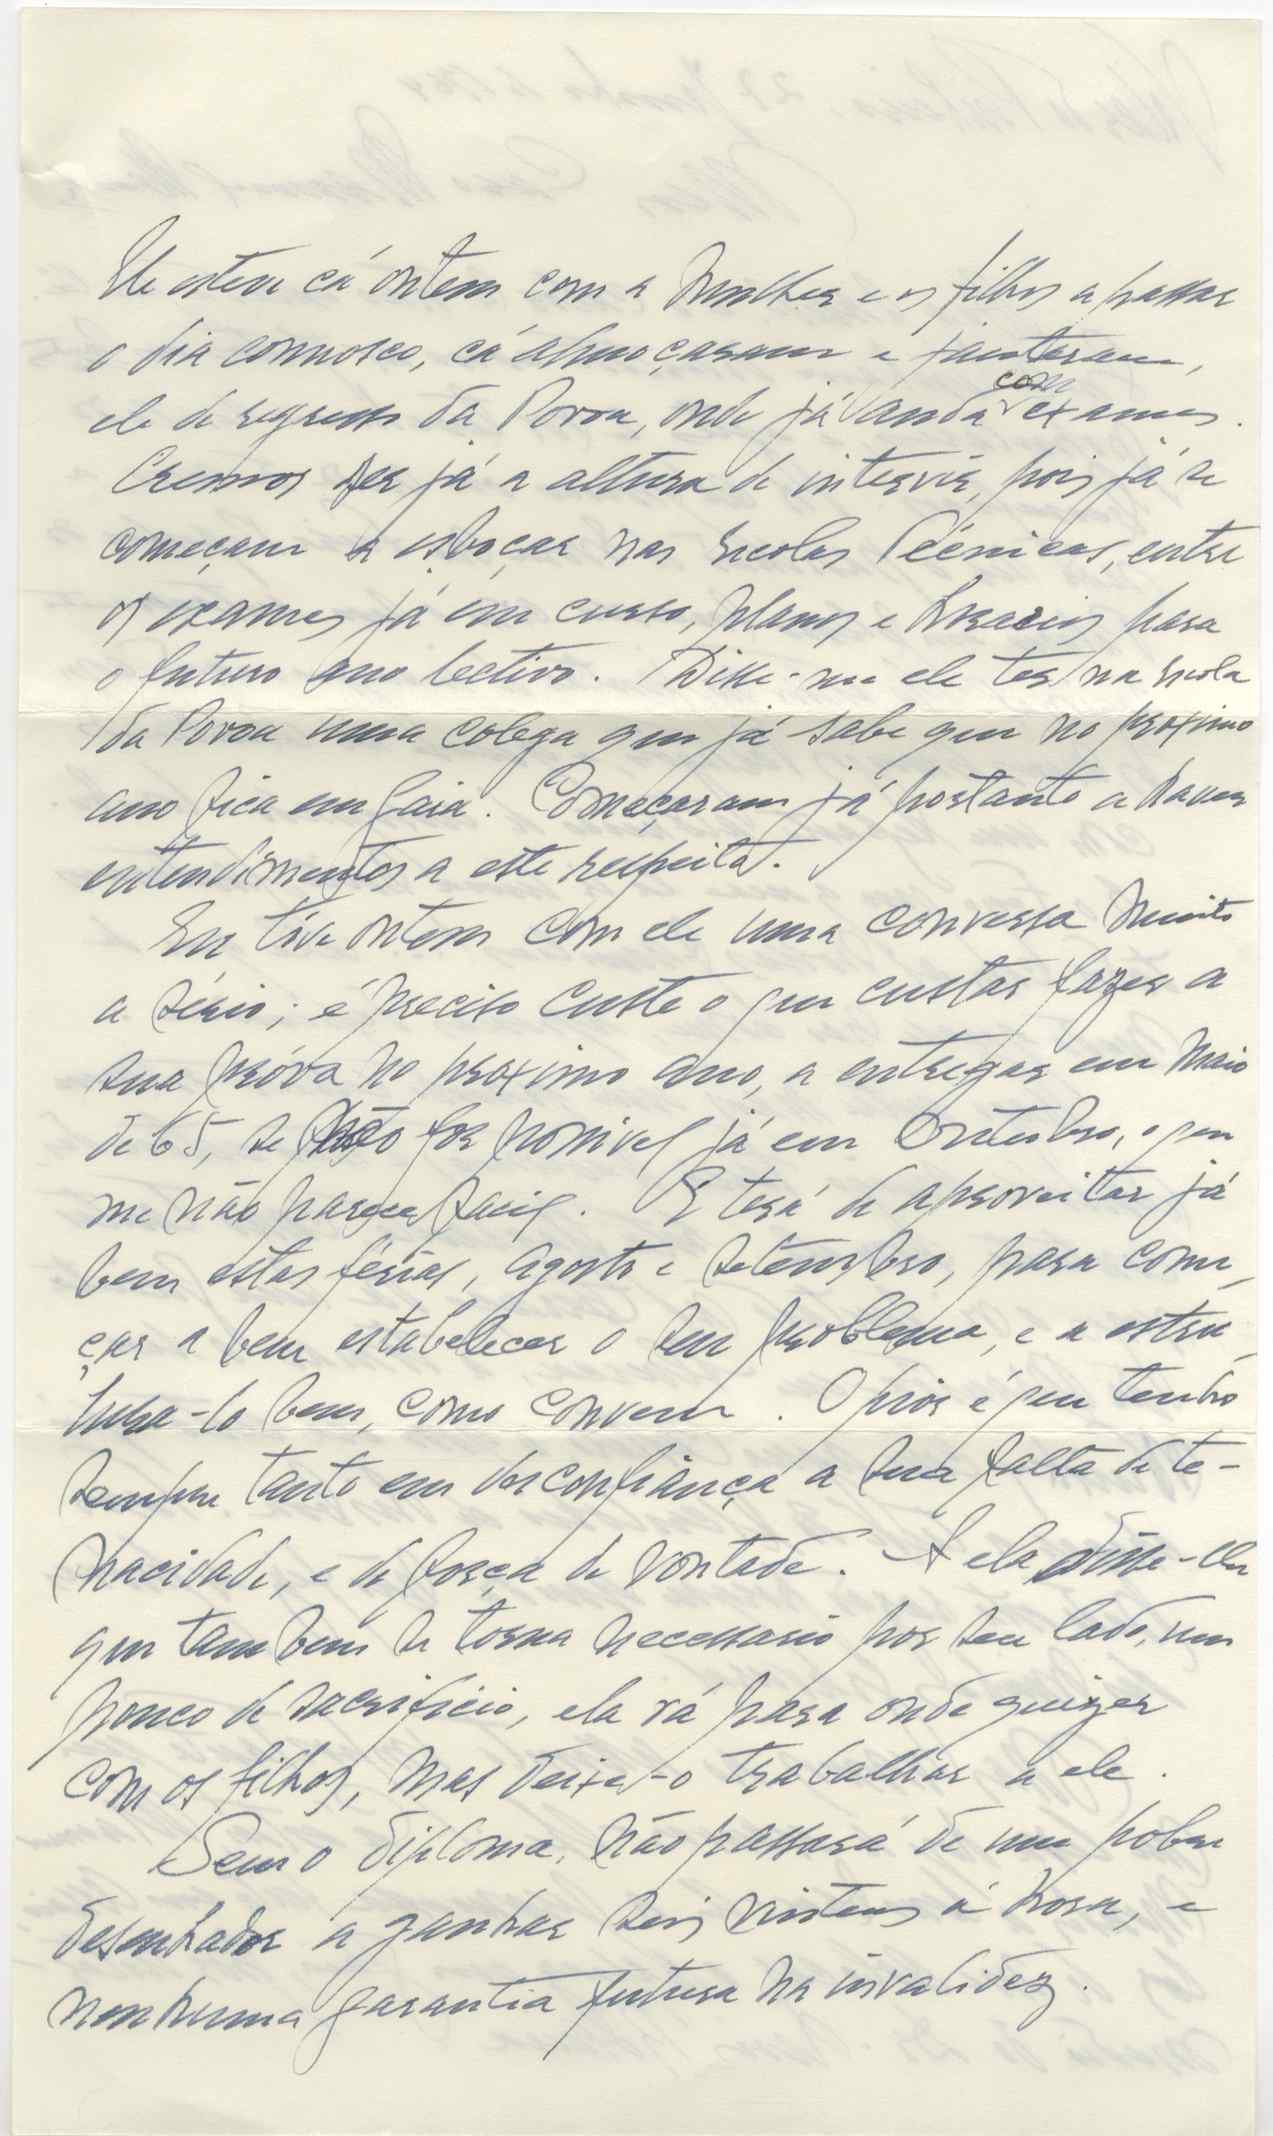 Ele esteve cá ontem com a mulher e os filhos a passar
o dia connosco, cá almoçaram e jantaram,
ele de regresso da Povoa, onde já anda com exames.
Cremos ser já a altura de intervir, pois já se
começam a esboçar nas Escolas Técnicas, entre
os exames já em curso, planos e horarios para
o futuro ano lectivo. Disse-me ele ter na Escola
da Povoa uma colega que já sabe que no proximo
ano fica em Gaia. Começaram já portanto a haver
entendimentos a este respeito.
Eu tive ontem com ele uma conversa muito
a sério; é preciso custe o que custar fazer a
sua próva no proximo ano, a entregar em Maio
de 65, se não for possivel já em Outubro, o que
me não parece facil. E terá de aproveitar já
bem estas férias, Agosto e Setembro, para come-
çar a bem estabelecer o seu problema, e a estru-
tura-lo bem, como convem. O pior é que tenho
sempre tanto em desconfiança a sua falta de te-
nacidade, e de força de vontade. A ela disse-lhe
que tambem se torna necessario por seu lado, um
pouco de sacrificio, ela vá para onde quizer
com os filhos, mas deixe-o trabalhar a ele.
Sem o diploma, não passará de um pobre
desenhador a ganhar seis vintens á hora, e
nenhuma garantia futura na invalidez.